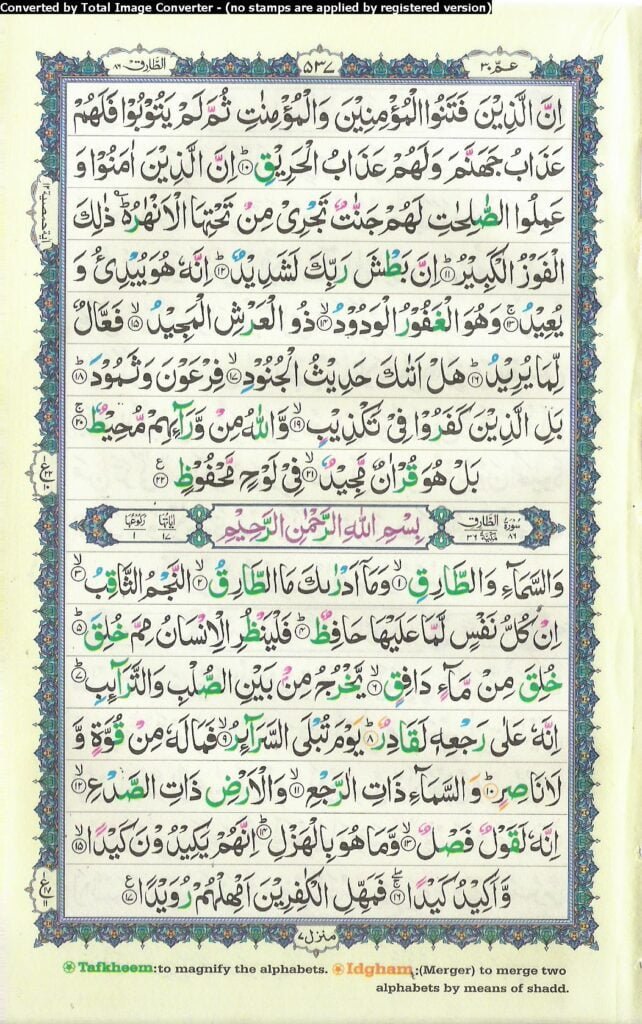 Converted by Total Image Converter - (no stamps are applied by registered version)
عمّ ٣٠
٥٣٧
الطّارق ٨٦
اِنَّ الَّذِيْنَ فَتَنُوا الْمُؤْمِنِيْنَ وَالْمُؤْمِنٰتِ ثُمَّ لَمْ يَتُوْبُوْا فَلَهُمْ
عَذَابُ جَهَنَّمَ وَلَهُمْ عَذَابُ الْحَرِيْقِ ؕ‏﴿۱۰﴾ اِنَّ الَّذِيْنَ اٰمَنُوْا وَ
عَمِلُوا الصّٰلِحٰتِ لَهُمْ جَنّٰتٌ تَجْرِىْ مِنْ تَحْتِهَا الْاَنْهٰرُ ؕ ذٰلِكَ
الْفَوْزُ الْكَبِيْرُ ؕ‏﴿۱۱﴾ اِنَّ بَطْشَ رَبِّكَ لَشَدِيْدٌ ؕ‏﴿۱۲﴾ اِنَّهٗ هُوَ يُبْدِئُ وَ
يُعِيْدُ ۚ‏﴿۱۳﴾ وَهُوَ الْغَفُوْرُ الْوَدُوْدُ ۙ‏﴿۱۴﴾ ذُو الْعَرْشِ الْمَجِيْدُ ۙ‏﴿۱۵﴾ فَعَّالٌ
لِّمَا يُرِيْدُ ؕ‏﴿۱۶﴾ هَلْ اَتٰٮكَ حَدِيْثُ الْجُنُوْدِ ۙ‏﴿۱۷﴾ فِرْعَوْنَ وَثَمُوْدَ ؕ‏﴿۱۸﴾
بَلِ الَّذِيْنَ كَفَرُوْا فِىْ تَكْذِيْبٍ ۙ‏﴿۱۹﴾ وَّاللّٰهُ مِنْ وَّرَآٮِٕهِمْ مُّحِيْطٌ ۚ‏﴿۲۰﴾
بَلْ هُوَ قُرْاٰنٌ مَّجِيْدٌ ۙ‏﴿۲۱﴾ فِىْ لَوْحٍ مَّحْفُوْظٍ ‏﴿۲۲﴾
سُوْرَةُ ٨٦ الطَّارِقِ مَكِّيَّةٌ ٣٦
بِسْمِ اللّٰهِ الرَّحْمٰنِ الرَّحِيْمِ
اٰيَاتُهَا ١٧ رُكُوْعُهَا ١
وَالسَّمَآءِ وَالطَّارِقِ ۙ‏﴿۱﴾ وَمَاۤ اَدْرٰٮكَ مَا الطَّارِقُ ۙ‏﴿۲﴾ النَّجْمُ الثَّاقِبُ ۙ‏﴿۳﴾
اِنْ كُلُّ نَفْسٍ لَّمَّا عَلَيْهَا حَافِظٌ ؕ‏﴿۴﴾ فَلْيَنْظُرِ الْاِنْسَانُ مِمَّ خُلِقَ ؕ‏﴿۵﴾
خُلِقَ مِنْ مَّآءٍ دَافِقٍ ۙ‏﴿۶﴾ يَّخْرُجُ مِنْۢ بَيْنِ الصُّلْبِ وَالتَّرَآٮِٕبِ ؕ‏﴿۷﴾
اِنَّهٗ عَلٰى رَجْعِهٖ لَقَادِرٌ ؕ‏﴿۸﴾ يَوْمَ تُبْلَى السَّرَآٮِٕرُ ۙ‏﴿۹﴾ فَمَا لَهٗ مِنْ قُوَّةٍ وَّ
لَا نَاصِرٍ ؕ‏﴿۱۰﴾ وَالسَّمَآءِ ذَاتِ الرَّجْعِ ۙ‏﴿۱۱﴾ وَالْاَرْضِ ذَاتِ الصَّدْعِ ۙ‏﴿۱۲﴾
اِنَّهٗ لَقَوْلٌ فَصْلٌ ۙ‏﴿۱۳﴾ وَّمَا هُوَ بِالْهَزْلِ ؕ‏﴿۱۴﴾ اِنَّهُمْ يَكِيْدُوْنَ كَيْدًا ۙ‏﴿۱۵﴾
وَّاَكِيْدُ كَيْدًا ۚۖ‏﴿۱۶﴾ فَمَهِّلِ الْكٰفِرِيْنَ اَمْهِلْهُمْ رُوَيْدًا ‏﴿۱۷﴾
منزل ٧
Tafkheem:to magnify the alphabets. Idgham:(Merger) to merge two
alphabets by means of shadd.